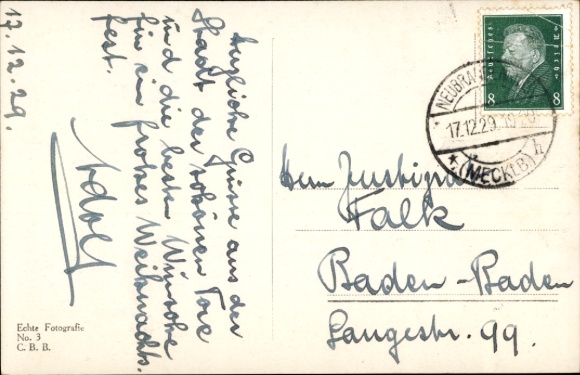 17.12.29.
Herzliche Grüsse aus der
Stadt der schönen Tore
und die besten Wünsche
für ein frohes Weihnachts-
fest.
Adolf
Echte Fotografie
No. 3
C. B. B.
Deutsches Reich
8 8
NEUBRA
17.12.29.
* (MECKLB) h
Herrn Justizra
Falk
Baden-Baden
Langestr. 99.